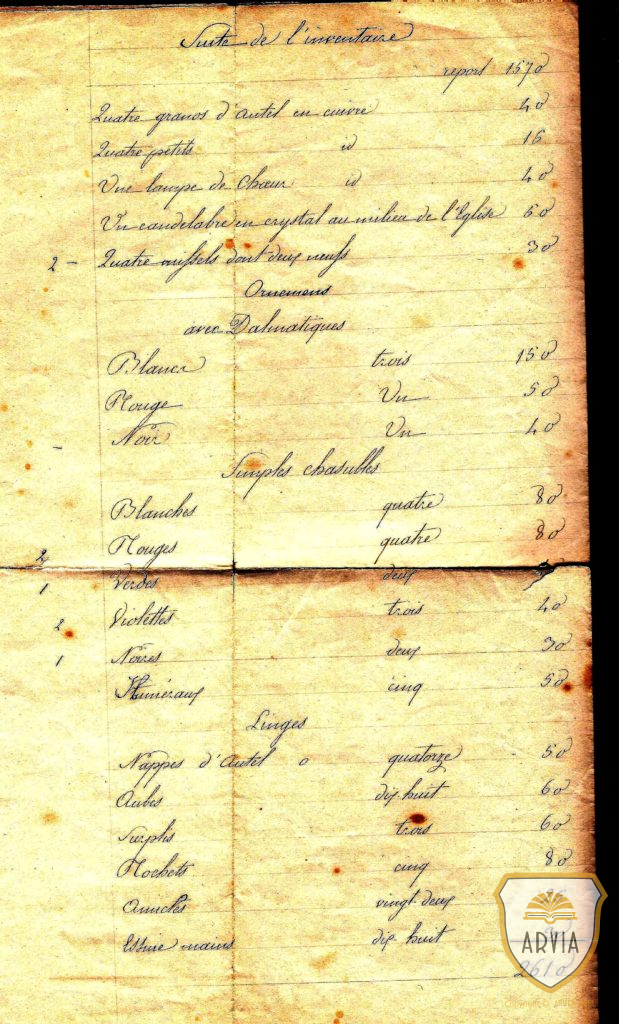 Suite de l'inventaire
report 1570
Quatre grands d'autel en cuivre 40
Quatre petits id 16
Une lampe de Chœur id 40
Un candelabre en crystal au milieu de l'Eglise 60
2 - Quatre missels dont deux neufs 30
Ornemens
avec Dalmatiques
Blancs trois 150
Rouge Un 50
- Noir Un 40
Simples chasubles
Blanches quatre 80
2 Rouges quatre 80
1 Verdes deux
2 Violettes trois 40
1 Noires deux 30
Huméraux cinq 50
Linges
Nappes d'Autel o quatorze 50
Aubes dix huit 60
Surplis trois 60
Rochets cinq 80
Amicts vingt-deux
Essuie mains dix huit
2610
ARVIA